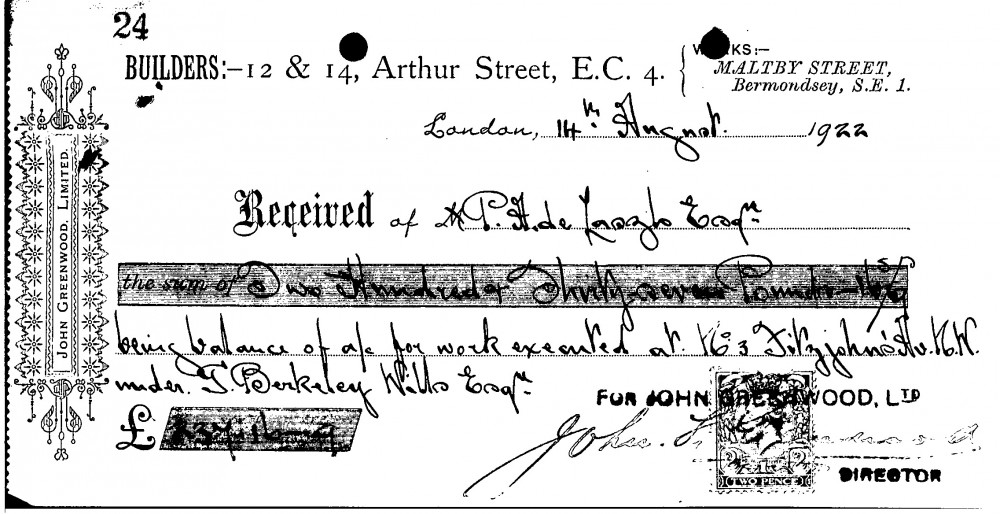 24
BUILDERS:—12 & 14, Arthur Street, E.C. 4.
WORKS:—
MALTBY STREET,
Bermondsey, S.E. 1.
JOHN GREENWOOD, LIMITED.
London, 14th August. 1922
Received of P. A. de Laszlo Esqre
the sum of Two Hundred & Thirty seven Pounds
being balance of a/c for work executed at No 3 Fitzjohn's Av. N.W.
under T. Berkeley Wills Esqre
£ 237-16-9
FOR JOHN GREENWOOD, LTD
John
TWO PENCE
DIRECTOR